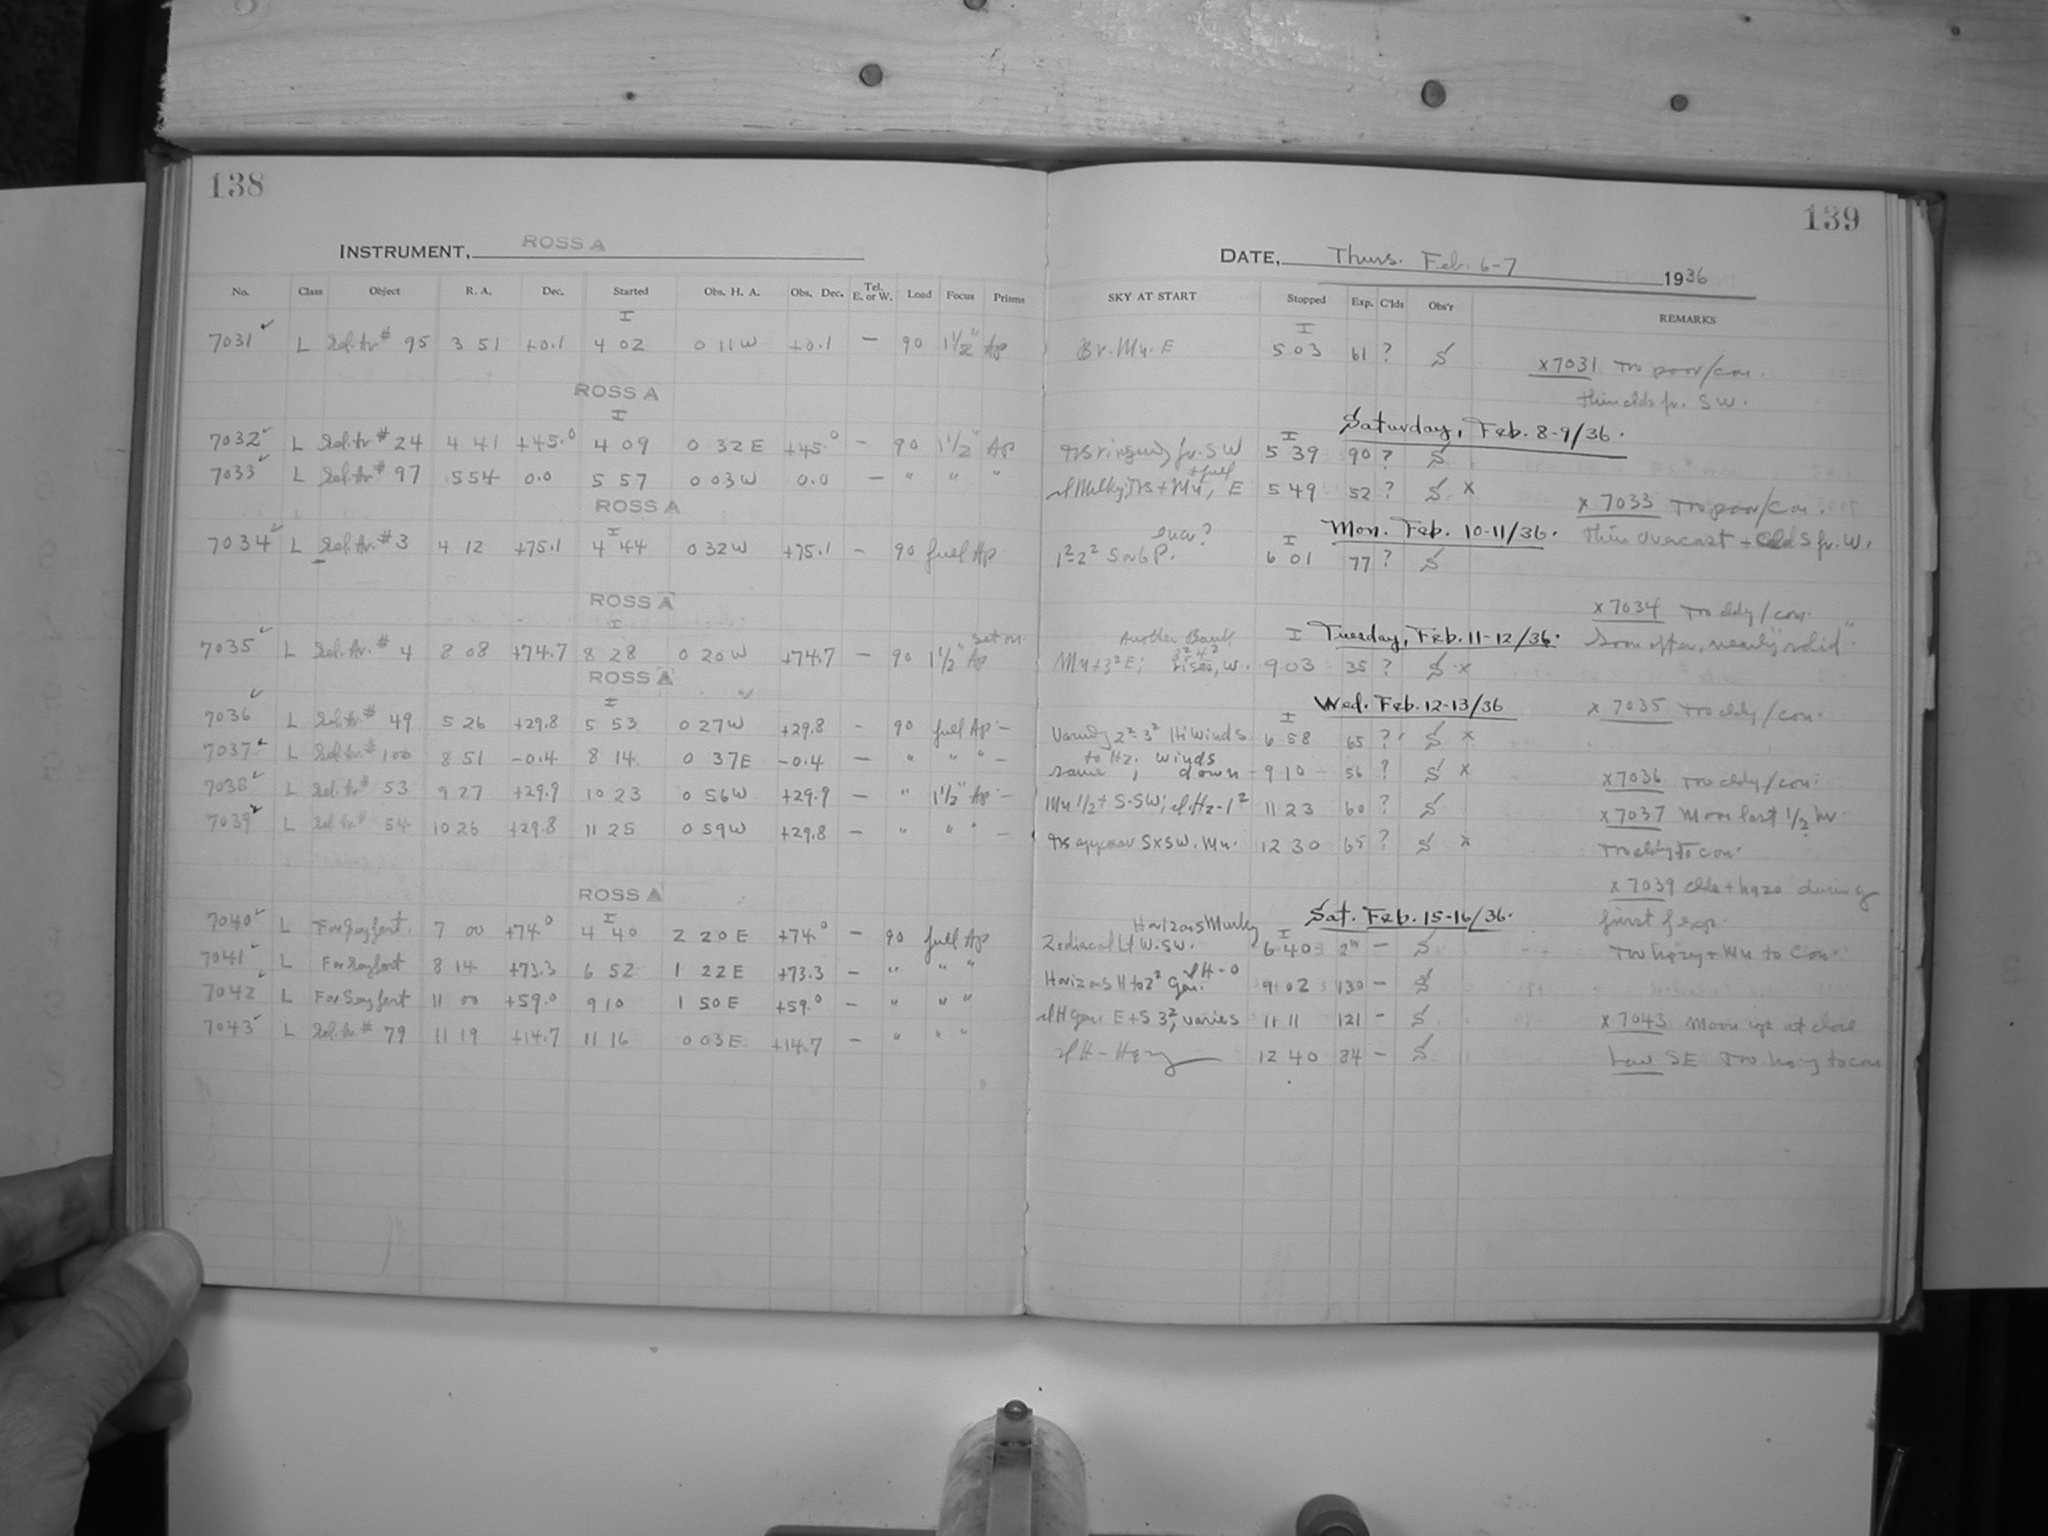 138
139
INSTRUMENT, ROSS A
DATE, Thurs. Feb. 6-7 1936
No. Class Object R. A. Dec. Started Obs. H. A. Obs. Dec. Tel. E. or W. Load Focus Prisms SKY AT START Stopped Exp. C'lds Obs'r REMARKS
I I
7031 L Sel. Ar # 95 3 51 +0.1 4 02 0 11 W +0.1 — 90 1½" Ap Br. Mu. E 5 03 61 ? S x 7031 Too poor/con.
thin clds fr. SW.
ROSS A
Saturday, Feb. 8-9/36.
I I
7032 L Sel. Ar # 24 4 41 +45.0 4 09 0 32 E +45.0 — 90 1½" Ap fr. SW 5 39 90 ? S
7033 L Sel. Ar # 97 5 54 0.0 5 57 0 03 W 0.0 — " " " E 5 49 52 ? S x x 7033 Too poor/con.
ROSS A
Mon. Feb. 10-11/36. Thin overcast + Clds fr. W.
I I
7034 L Sel. Ar. # 3 4 12 +75.1 4 44 0 32 W +75.1 — 90 fuel Ap 6 01 77 ? S
ROSS A
x 7034 Too cldy/con.
Tuesday, Feb. 11-12/36. Soon after, nearly "solid".
I I
7035 L Sel. Ar. # 4 8 08 +74.7 8 28 0 20 W +74.7 — 90 1½" Ap Another Bank 9 03 35 ? S x
ROSS A
Wed. Feb. 12-13/36 x 7035 Too cldy/con.
I I
7036 L Sel. Ar # 49 5 26 +29.8 5 53 0 27 W +29.8 - 90 fuel Ap - 2²-3² Hi Winds 6 58 65 ? S x
7037 L Sel. Ar # 100 8 51 -0.4 8 14 0 37 E -0.4 — " " " — to Hz. winds
same, down - 9 10 - 56 ? S x x 7036 Too cldy/con.
7038 L Sel. Ar # 53 9 27 +29.9 10 23 0 56 W +29.9 — " 1½" Ap - Mu ½ + S-SW; 11 23 60 ? S x 7037 Moon last ½ hr.
7039 L Sel. Ar # 54 10 26 +29.8 11 25 0 59 W +29.8 — " " " — SxSW. Mu. 12 30 65 ? S x Too cldy to con.
ROSS A
x 7039 clds + haze during
Sat. Feb. 15-16/36. first of exp.
I I
7040 L For Seyfert. 7 00 +74.0 4 40 2 20 E +74.0 — 90 fuel Ap Horizons Murky
Zodiacal Lt W. SW. 6 40 2m — S Too hazy + Mu to Con.
7041 L For Seyfert 8 14 +73.3 6 52 1 22 E +73.3 — " " " Horizons H to 2² Gen. 9 02 130 — S
7042 L For Seyfert 11 00 +59.0 9 10 1 50 E +59.0 — " " " E + S 3², varies 11 11 121 - S x 7043 Moon up at close
7043 L Sel. Ar. # 79 11 19 +14.7 11 16 0 03 E +14.7 — " " " 12 40 84 — S Low SE Too hazy to con